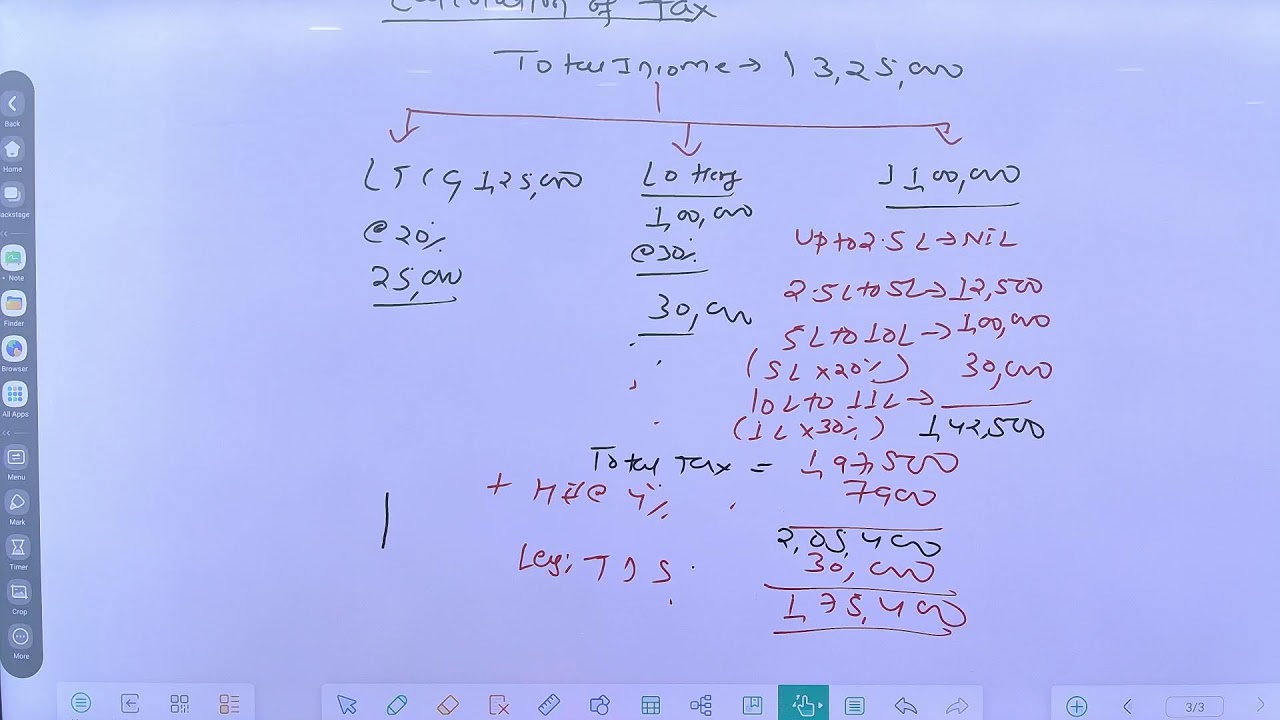 Calculation of Tax
Total Income → 13,25,000
LTCG 1,25,000
@ 20%
25,000
Lottery
1,00,000
@30%
30,000
11,00,000
Upto 2.5L → NIL
2.5L to 5L → 12,500
5L to 10L → 1,00,000
(5L x 20%) 30,000
10L to 11L →
(1L x 30%) 1,42,500
Total Tax = 1,97,500
+ HEC @ 4% 7900
2,05,400
Less: TDS 30,000
1,75,400
Back
Home
Backstage
Note
Finder
Browser
All Apps
Menu
Mark
Timer
Crop
More
3/3